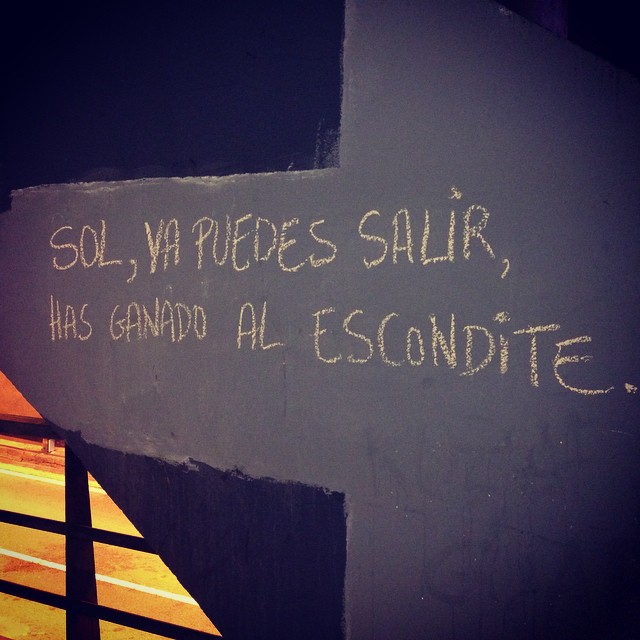 SOL, YA PUEDES SALiR,
HAS GANADO AL ESCONDiTE.